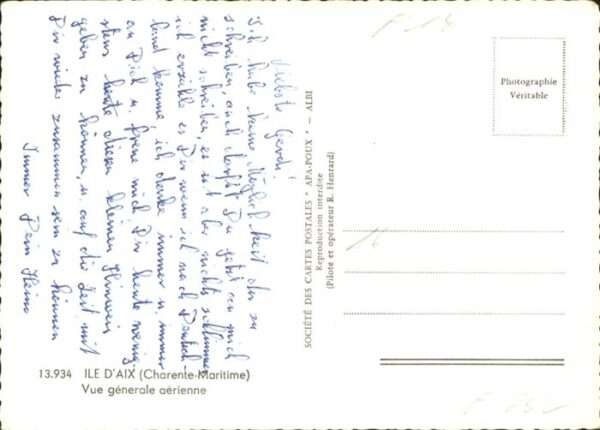 Liebste Gerdi!
Ich habe keine Möglichkeit dir zu
schreiben, auch darfst Du jetzt an mich
nicht schreiben, es ist aber nichts schlimmes
ich erzähle es Dir wenn ich nach Deutsch-
land komme, ich denke immer u. immer
an Dich u. freue mich Dir heute wenig-
stens heute diesen kleinen Hinweis
geben zu können, u. auf die Zeit mit
Dir wieder zusammen sein zu können
Immer Dein Heino
13.934 ILE D'AIX (Charente-Maritime)
Vue générale aérienne
SOCIÉTÉ DES CARTES POSTALES "APA-POUX" — ALBI
Reproduction interdite
(Pilote et opérateur R. Henrard)
Photographie
Véritable